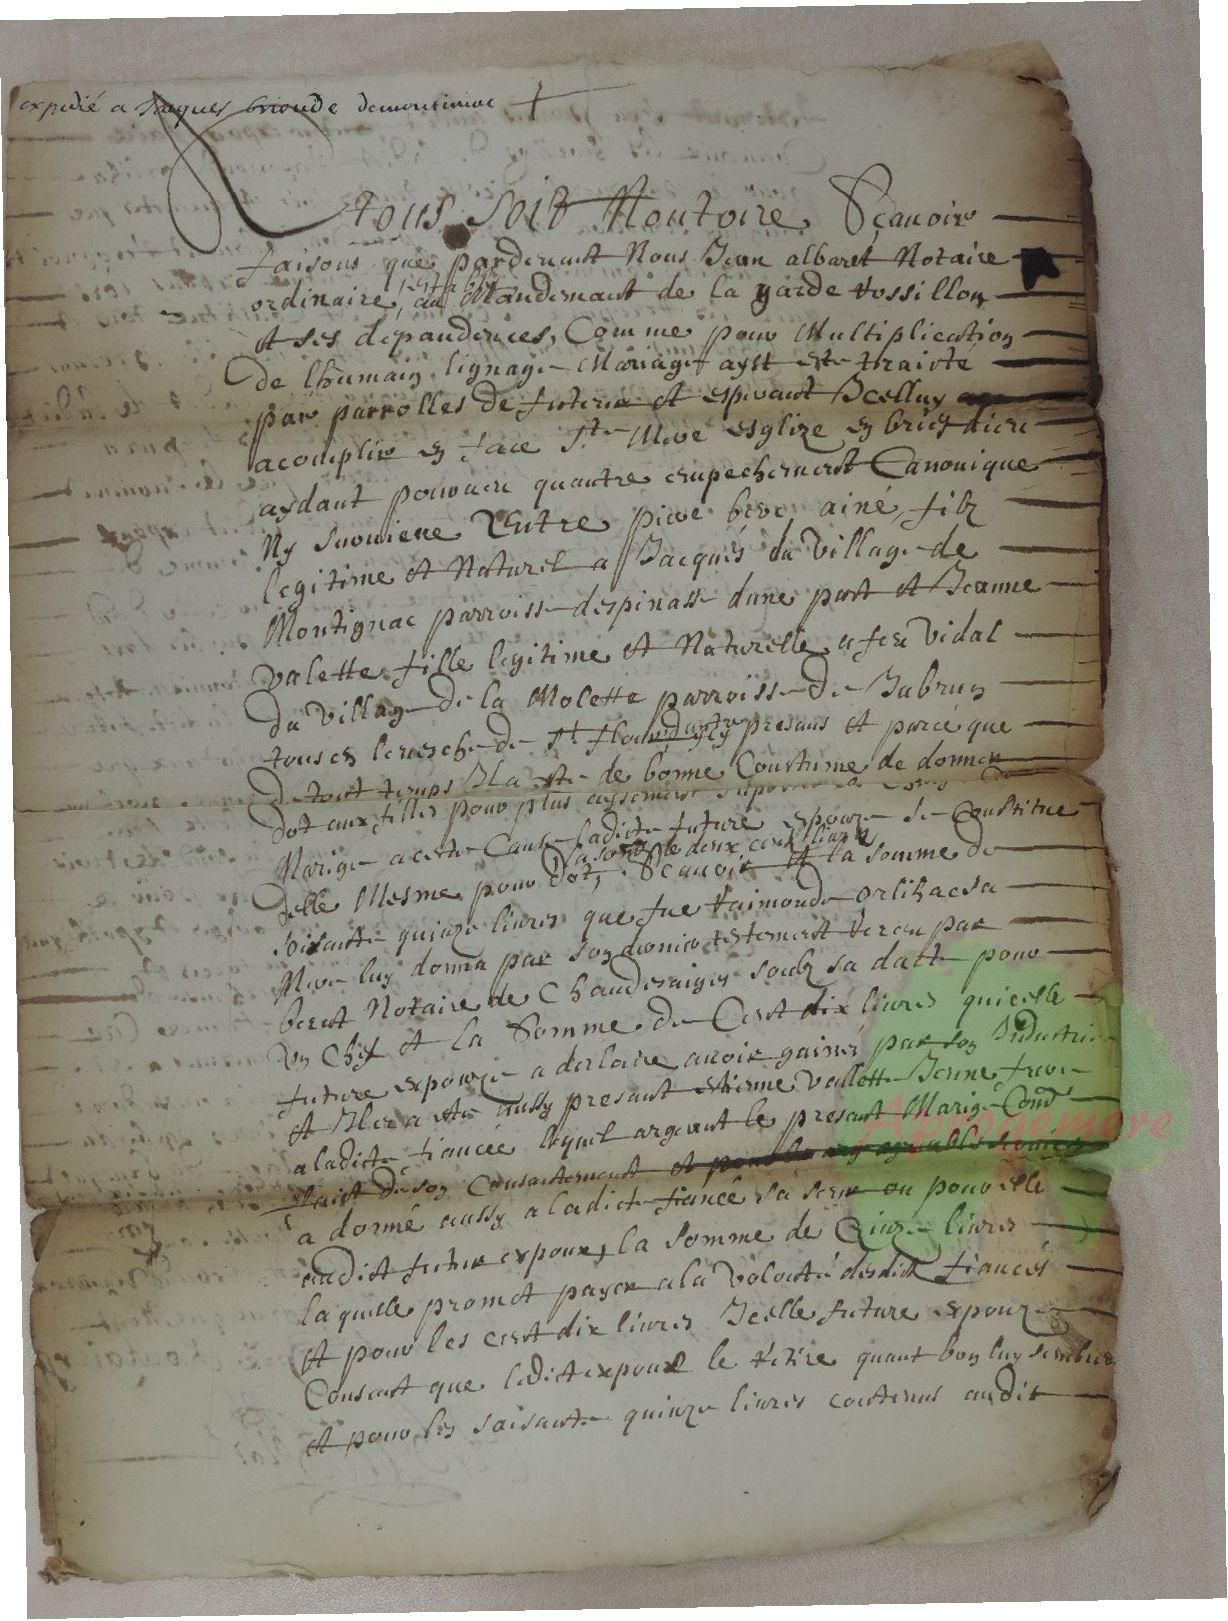 expedié a Jaques brioude demontiniac
A tous soit Noutoire, Sçauoir
faisons que pardeuant Nous Jean albaret Notaire
ordinaire, estably au Mandemant de la garde Rossillon
et ses dépandences, Comme pour Multiplication
de lhumain lignage Mariage ayst esté traicté
par parrolles de futeur et espérant Jcelluy
acomplir en face Ste Mere esglize, en brief dieu
aydant pourueu quautre empechement Canonique
Ny suruiene Entre piere beve ainé, filz
legitime et Naturel a Jacques du Village de
Montignac parroisse despinasse dune part et Jeanne
valette fille legitime et Naturelle a feu Vidal
du Village de la Molette parroisse de Jabrun
tous en leuesche de St flour dautre presans et parce que
de tout temps Jl a esté de bonne Coustume de donner
dot aux filles pour plus aysement suporter les
Marige a ceste Cause ladicte future espouze se Constitue
delle Mesme pour dot, la somme de deux cens liures Scauoir la somme de
soixante quinze liures que fue Raimonde orlihac sa
Mere luy donna par son dernier testement Receu par
Notaire de Chaudesaigues soubz sa dacte pour
un Chef et la Somme de Cent dix liures qu'icelle
future espouze a declairé auoir gainés par son Industrie
et Jlec a esté aussy presant estienne Vallette Jeune frere
a ladicte fiancée lequel argeant le presant Marige Cond
faict de son Consantement et
a donné aussy a ladicte fiancé sa seur ou pour elle
audict futur expoux, la somme de Quinze liures
laquelle promet payer a la Volonté desdict fiancés
et pour les cent dix liures Jcelle future espouze
Consant que ledict expoux le retire quant bon luy semblera
et pour les saisante quinze liures contenus audit
Aprogemere